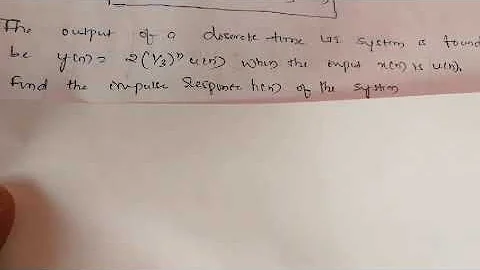 The output of a discrete-time LTI system is found
be y(n) = 2(1/3)ⁿ u(n) when the input x(n) is u(n).
Find the impulse response h(n) of the system